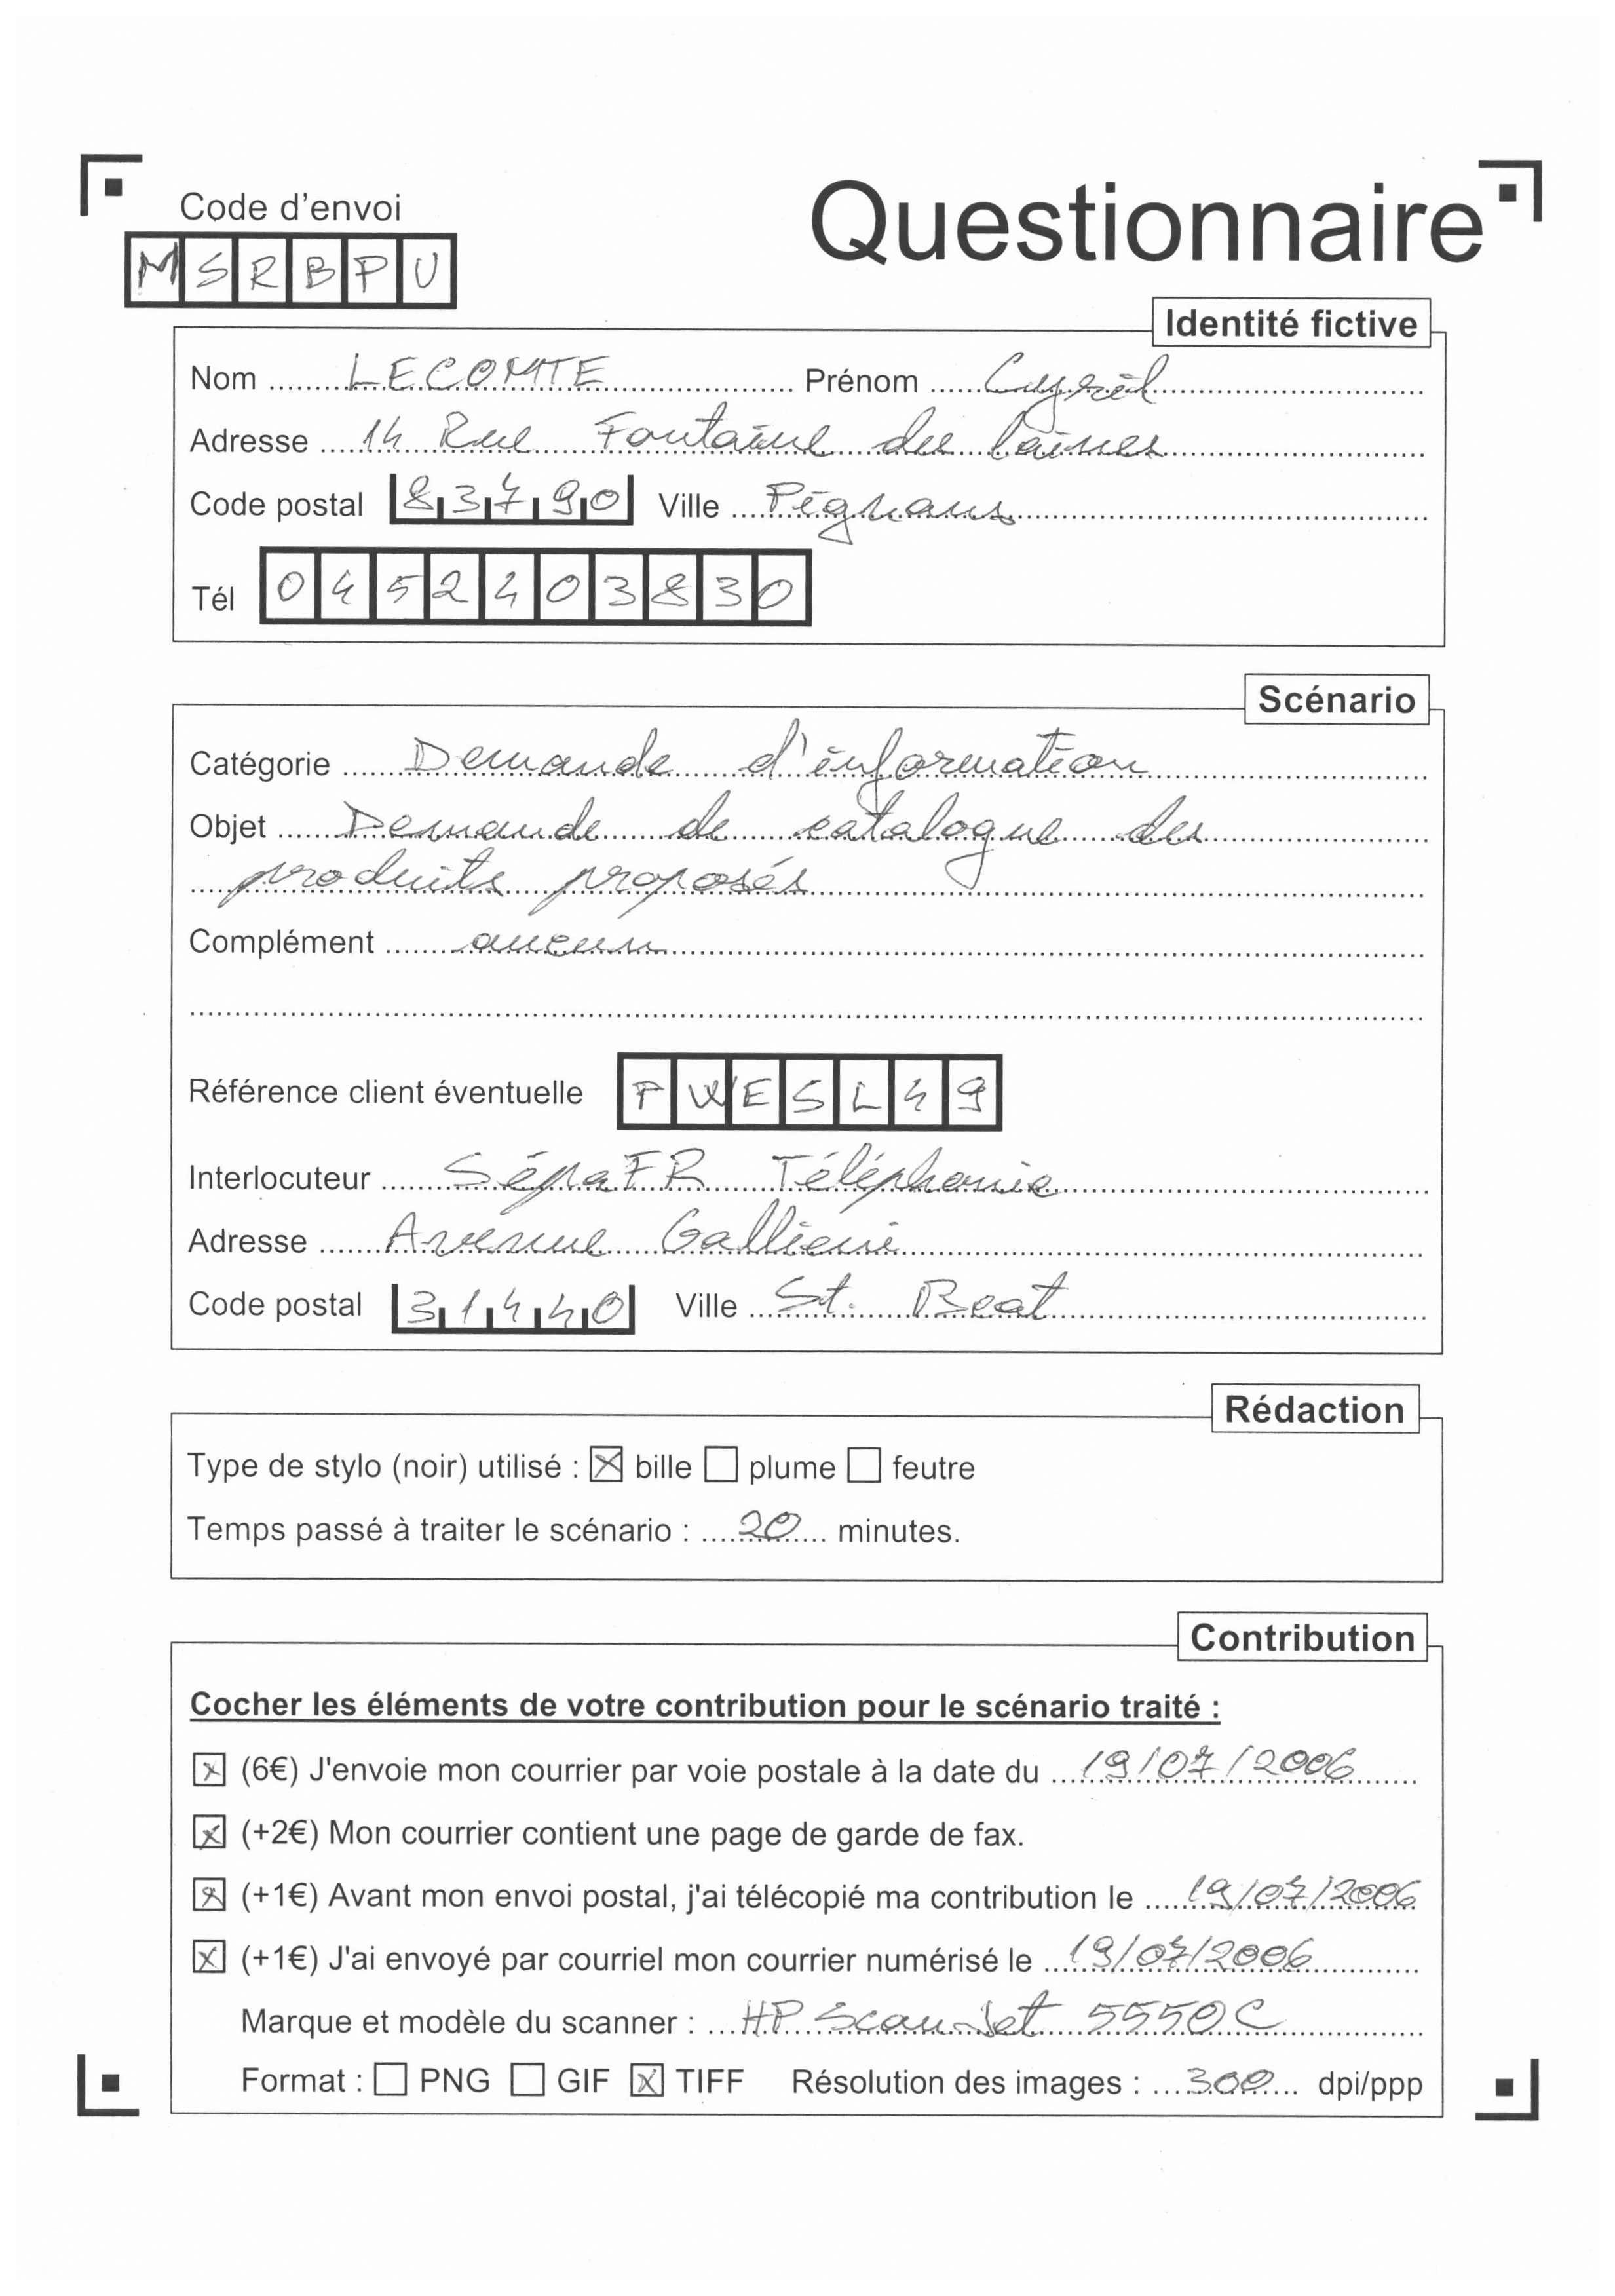 Questionnaire
Code d'envoi
MSRBPU
Identité fictive
Nom LECOMTE Prénom Cyril
Adresse 14 Rue Fontaine des Laines
Code postal 83790 Ville Pignans
Tél 0452403830
Scénario
Catégorie Demande d'information
Objet Demande de catalogue des
produits proposés
Complément aucun
Référence client éventuelle PWESL49
Interlocuteur SépaFR Téléphonie
Adresse Avenue Gallieni
Code postal 31440 Ville St. Beat
Rédaction
Type de stylo (noir) utilisé : ☒ bille ☐ plume ☐ feutre
Temps passé à traiter le scénario : 20 minutes.
Contribution
Cocher les éléments de votre contribution pour le scénario traité :
☒ (6€) J'envoie mon courrier par voie postale à la date du 19/07/2006
☒ (+2€) Mon courrier contient une page de garde de fax.
☒ (+1€) Avant mon envoi postal, j'ai télécopié ma contribution le 19/07/2006
☒ (+1€) J'ai envoyé par courriel mon courrier numérisé le 19/07/2006
Marque et modèle du scanner : HP ScanJet 5550C
Format : ☐ PNG ☐ GIF ☒ TIFF Résolution des images : 300 dpi/ppp